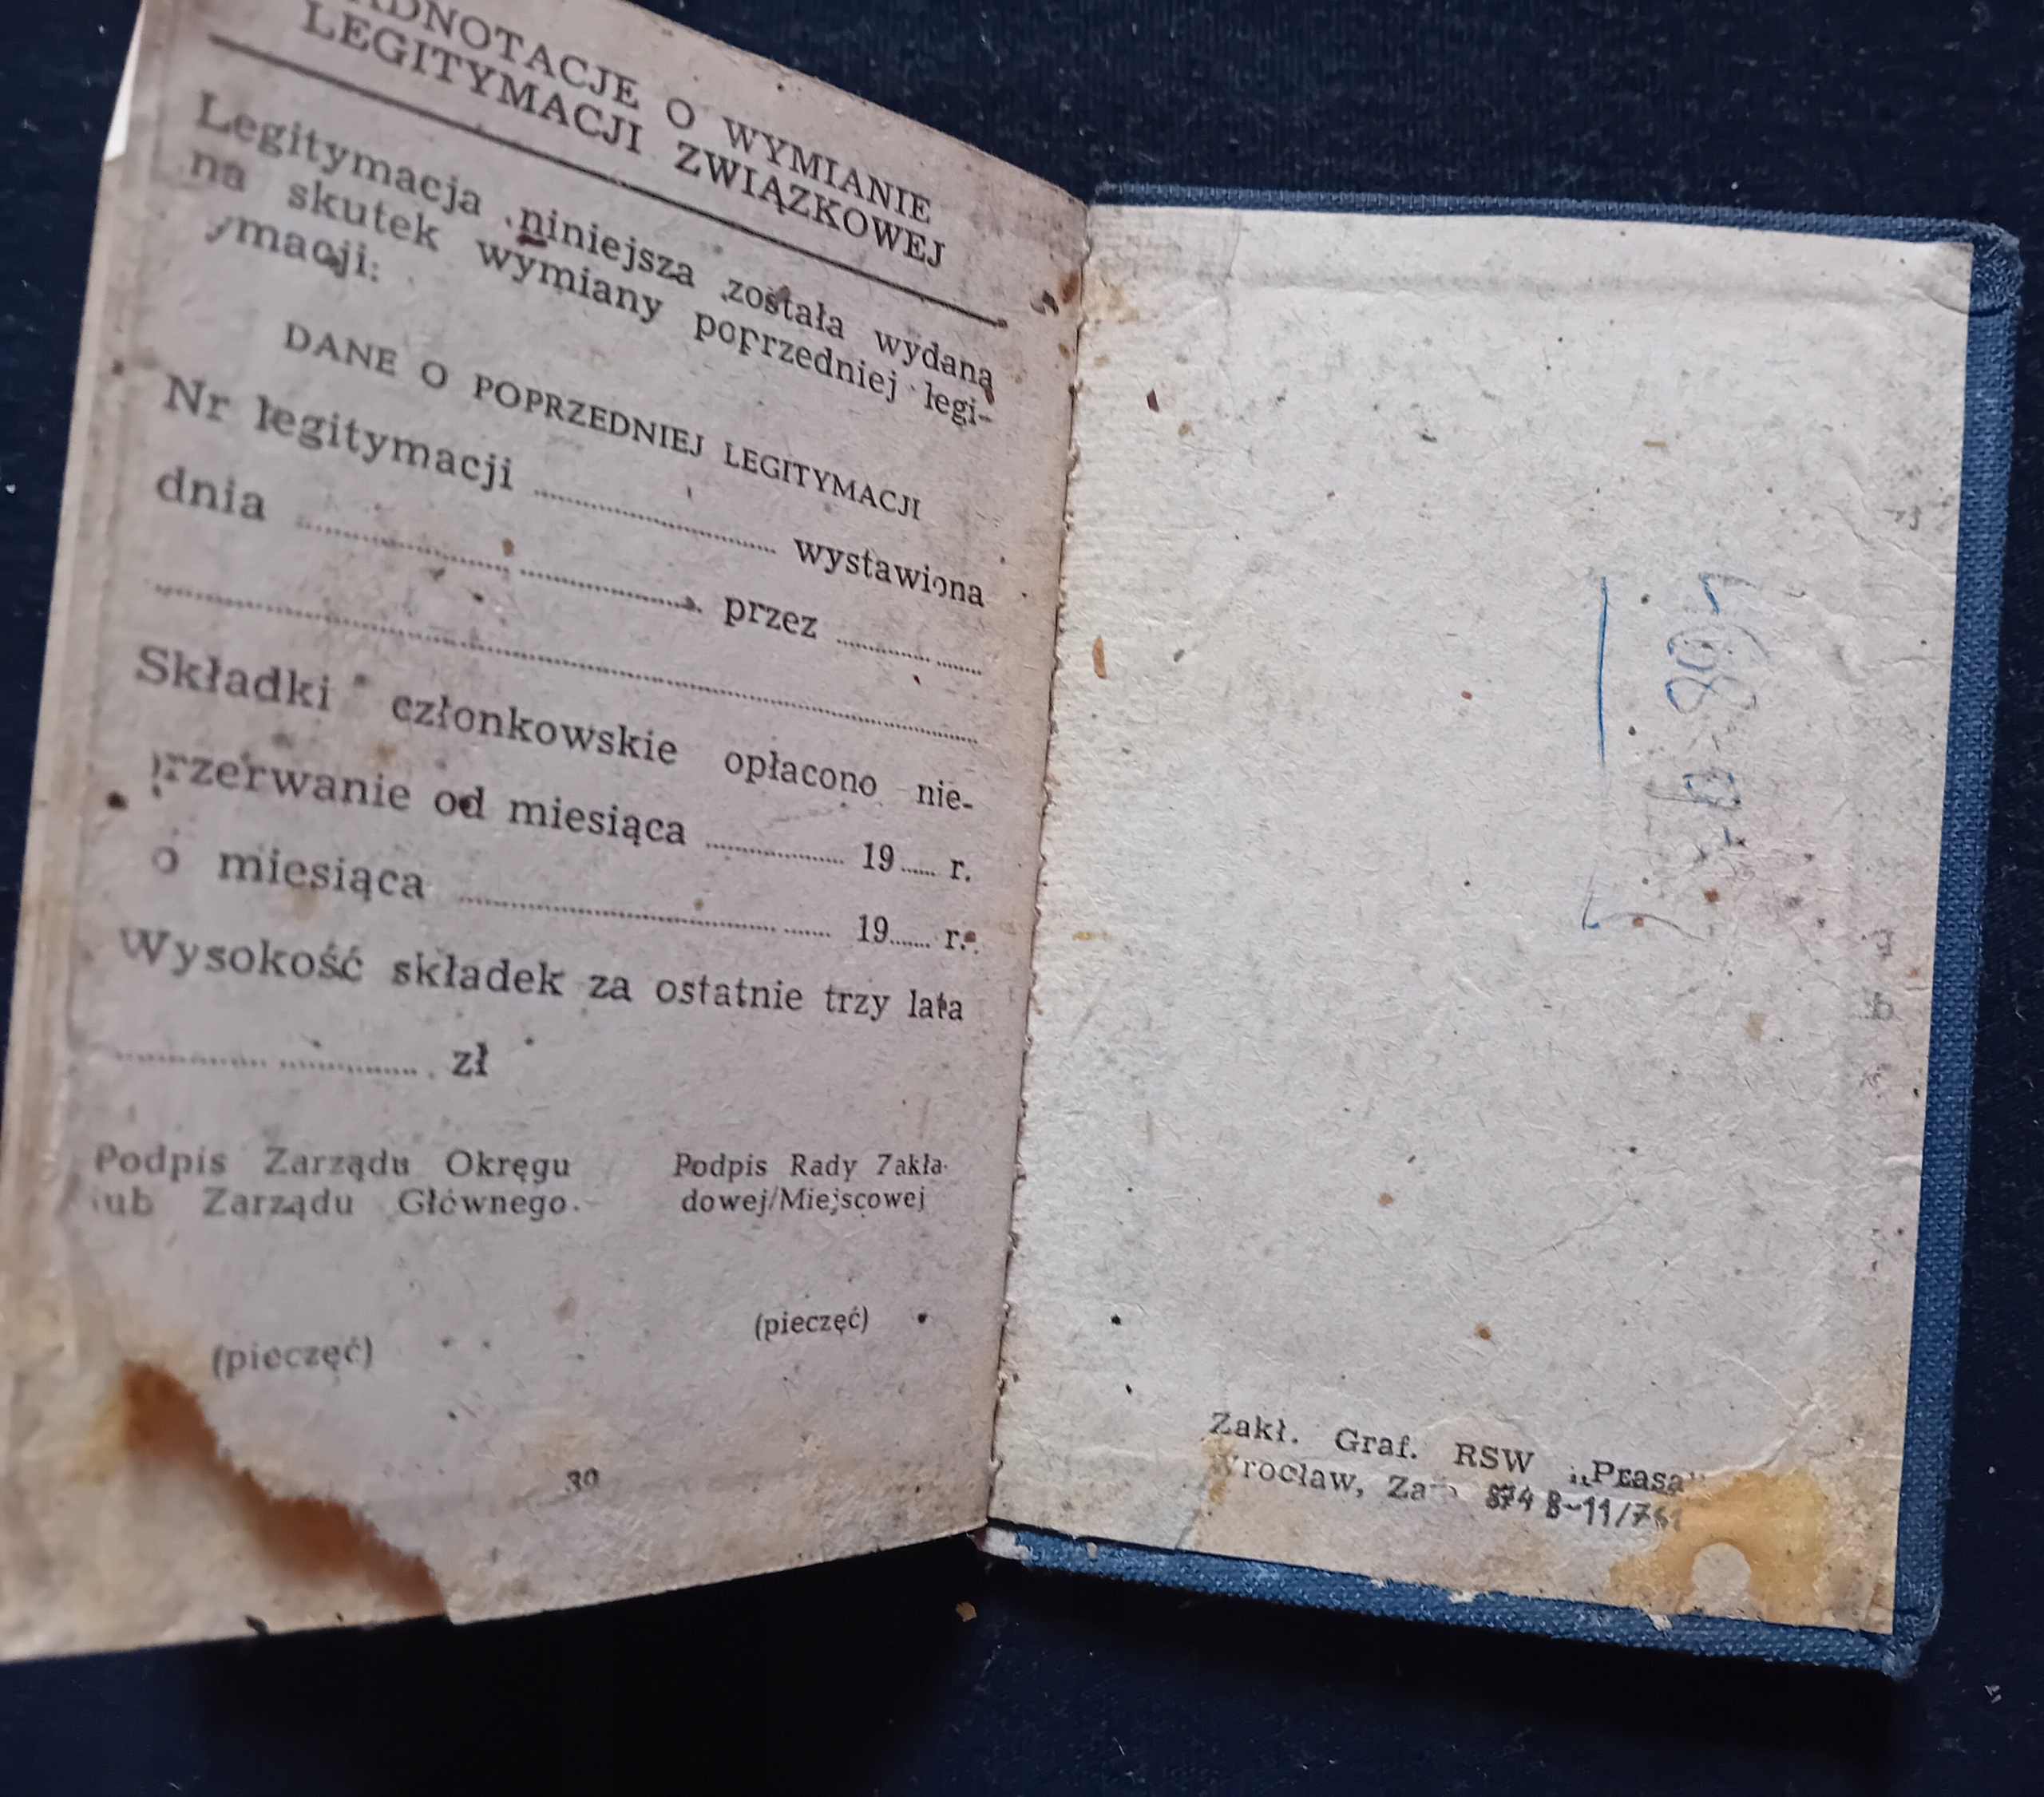 ADNOTACJE O WYMIANIE
LEGITYMACJI ZWIĄZKOWEJ
Legitymacja niniejsza została wydana
na skutek wymiany poprzedniej legi-
ymacji:
DANE O POPRZEDNIEJ LEGITYMACJI
Nr legitymacji .................... wystawiona
dnia .................... przez ..........
Składki członkowskie opłacono nie-
przerwanie od miesiąca .......... 19..... r.
o miesiąca .................... 19..... r.
Wysokość składek za ostatnie trzy lata
.................... zł
Podpis Zarządu Okręgu
lub Zarządu Głównego
Podpis Rady Zakła-
dowej/Miejscowej
(pieczęć)
(pieczęć)
30
Zakł. Graf. RSW „Prasa"
Wrocław, 874 B-11/761